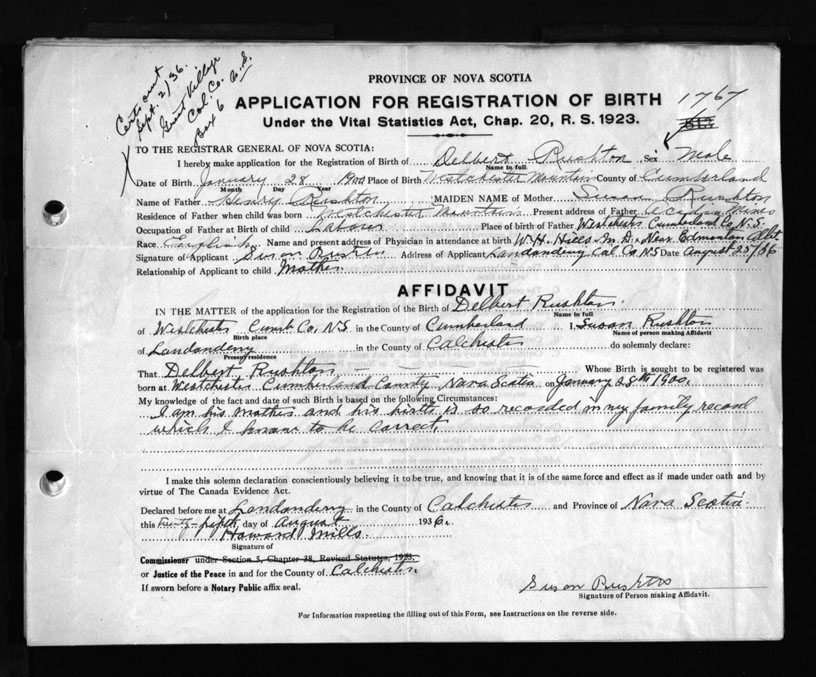 Certs out
Sept. 2/36.
Great Village
Col. Co. N.S.
Box 6
PROVINCE OF NOVA SCOTIA
APPLICATION FOR REGISTRATION OF BIRTH 1767
Under the Vital Statistics Act, Chap. 20, R. S. 1923.
TO THE REGISTRAR GENERAL OF NOVA SCOTIA:
I hereby make application for the Registration of Birth of Delbert Rushton Sex Male
Name in full
Date of Birth January 28 1900 Place of Birth Westchester Mountain County of Cumberland
Month Day Year
Name of Father Henry Rushton MAIDEN NAME of Mother Susan Rushton
Residence of Father when child was born Westchester Mountain Present address of Father Acadia Mines
Occupation of Father at Birth of child Labour Place of birth of Father Westchester Cumberland Co. N.S.
Race English Name and present address of Physician in attendance at birth W. H. Hills M. D. Near Edmonton Alta
Signature of Applicant Susan Rushton Address of Applicant Londonderry Col. Co. N S Date August 25/36
Relationship of Applicant to child Mother
AFFIDAVIT
IN THE MATTER of the application for the Registration of the Birth of Delbert Rushton.
Name in full
of Westchester Cumb Co, N.S. in the County of Cumberland I, Susan Rushton
Birth place Name of person making Affidavit
of Londonderry in the County of Colchester do solemnly declare:
Present residence
That Delbert Rushton Whose Birth is sought to be registered was
born at Westchester Cumberland County Nova Scotia on January 28th 1900.
My knowledge of the fact and date of such Birth is based on the following Circumstances:
I am his mother and his birth is so recorded in my family record
which I know to be correct.
I make this solemn declaration conscientiously believing it to be true, and knowing that it is of the same force and effect as if made under oath and by
virtue of The Canada Evidence Act.
Declared before me at Londonderry in the County of Colchester and Province of Nova Scotia
this twenty-fifth day of August 1936.
Howard Mills.
Signature of
Commissioner under Section 5, Chapter 38, Revised Statutes, 1923.
or Justice of the Peace in and for the County of Colchester
If sworn before a Notary Public affix seal.
Susan Rushton
Signature of Person making Affidavit.
For Information respecting the filling out of this Form, see Instructions on the reverse side.